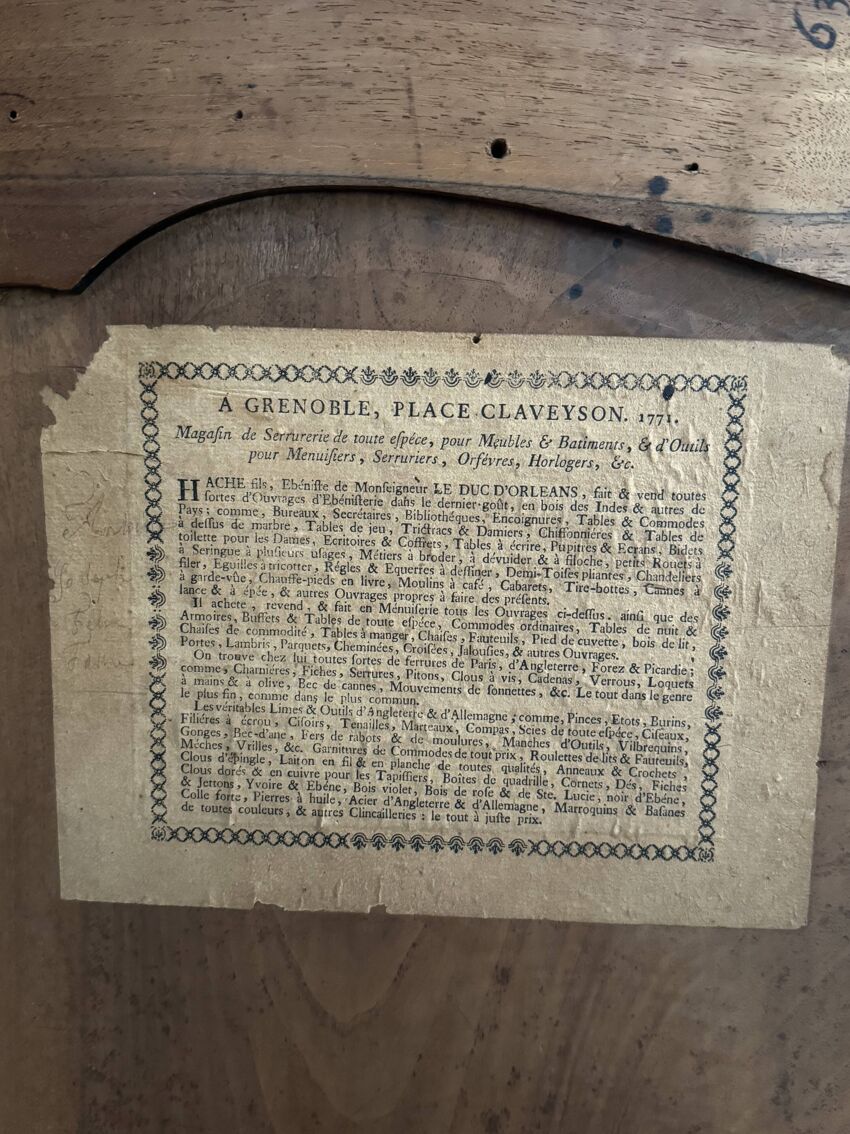 63
A GRENOBLE, PLACE CLAVEYSON. 1771.
Magaſin de Serrurerie de toute eſpéce, pour Meubles & Batiments, & d'Outils
pour Menuiſiers, Serruriers, Orfévres, Horlogers, &c.
HACHE fils, Ebéniſte de Monſeigneur LE DUC D'ORLEANS, fait & vend toutes
ſortes d'Ouvrages d'Ebéniſterie dans le dernier goût, en bois des Indes & autres de
Pays; comme, Bureaux, Secrétaires, Bibliothéques, Encoignures, Tables & Commodes
à deſſus de marbre, Tables de jeu, Trictracs & Damiers, Chiffonniéres & Tables de
toilette pour les Dames, Ecritoires & Coffrets, Tables à écrire, Pupitres & Ecrans, Bidets
à Seringue à pluſieurs uſages, Métiers à broder, à dévuider & à filoche, petits Rouets à
filer, Eguilles à tricotter, Régles & Equerres à deſſiner, Demi-Toiſes pliantes, Chandeliers
à garde-vûe, Chauffe-pieds en livre, Moulins à café, Cabarets, Tire-bottes, Cannes à
lance & à épée, & autres Ouvrages propres à faire des préſents.
Il achete, revend, & fait en Menuiſerie tous les Ouvrages ci-deſſus. ainſi que des
Armoires, Buffets & Tables de toute eſpéce, Commodes ordinaires, Tables de nuit &
Chaiſes de commodité, Tables à manger, Chaiſes, Fauteuils, Pied de cuvette, bois de lit,
Portes, Lambris, Parquets, Cheminées, Croiſées, Jalouſies, & autres Ouvrages.
On trouve chez lui toutes ſortes de ferrures de Paris, d'Angleterre, Forez & Picardie;
comme, Charniéres, Fiches, Serrures, Pitons, Clous à vis, Cadenas, Verrous, Loquets
à mains & à olive, Bec de cannes, Mouvements de ſonnettes, &c. Le tout dans le genre
le plus fin, comme dans le plus commun.
Les véritables Limes & Outils d'Angleterre & d'Allemagne; comme, Pinces, Etots, Burins,
Filiéres à écrou, Ciſoirs, Tenailles, Marteaux, Compas, Scies de toute eſpéce, Ciſeaux,
Gonges, Bec-d'ane, Fers de rabots & de moulures, Manches d'Outils, Vilbrequins,
Méches, Vrilles, &c. Garnitures de Commodes de tout prix, Roulettes de lits & Fauteuils,
Clous d'épingle, Laiton en fil & en planche de toutes qualités, Anneaux & Crochets,
Clous dorés & en cuivre pour les Tapiſſiers, Boîtes de quadrille, Cornets, Dés, Fiches
& Jettons, Yvoire & Ebéne, Bois violet, Bois de roſe & de Ste. Lucie, noir d'Ebéne,
Colle forte, Pierres à huile, Acier d'Angleterre & d'Allemagne, Marroquins & Baſanes
de toutes couleurs, & autres Clincailleries: le tout à juſte prix.